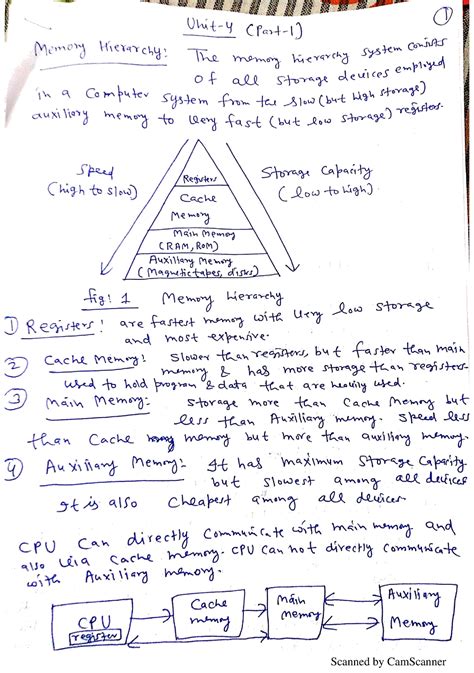 ①
Unit-4 (Part-1)
Memory Hierarchy: The memory hierarchy system consists
of all storage devices employed
in a Computer system from the slow (but high storage)
auxiliary memory to very fast (but low storage) registers.
Speed
(high to slow)
Storage Capacity
(low to high)
Registers
Cache
Memory
Main Memory
(RAM, ROM)
Auxiliary Memory
(Magnetic tapes, disks)
fig: 1 Memory Hierarchy
① Registers: are fastest memory with very low storage
and most expensive.
② Cache Memory: Slower than registers, but faster than main
memory & has more storage than registers.
used to hold program & data that are heavily used.
③ Main Memory: Storage more than Cache Memory but
less than Auxiliary memory. Speed less
than Cache memory but more than auxiliary memory.
④ Auxiliary Memory: It has maximum Storage Capacity
but slowest among all devices
It is also Cheapest among all devices.
CPU Can directly Communicate with main memory and
also via Cache memory. CPU can not directly communicate
with Auxiliary memory.
CPU
register
Cache
memory
Main
memory
Auxiliary
Memory
Scanned by CamScanner